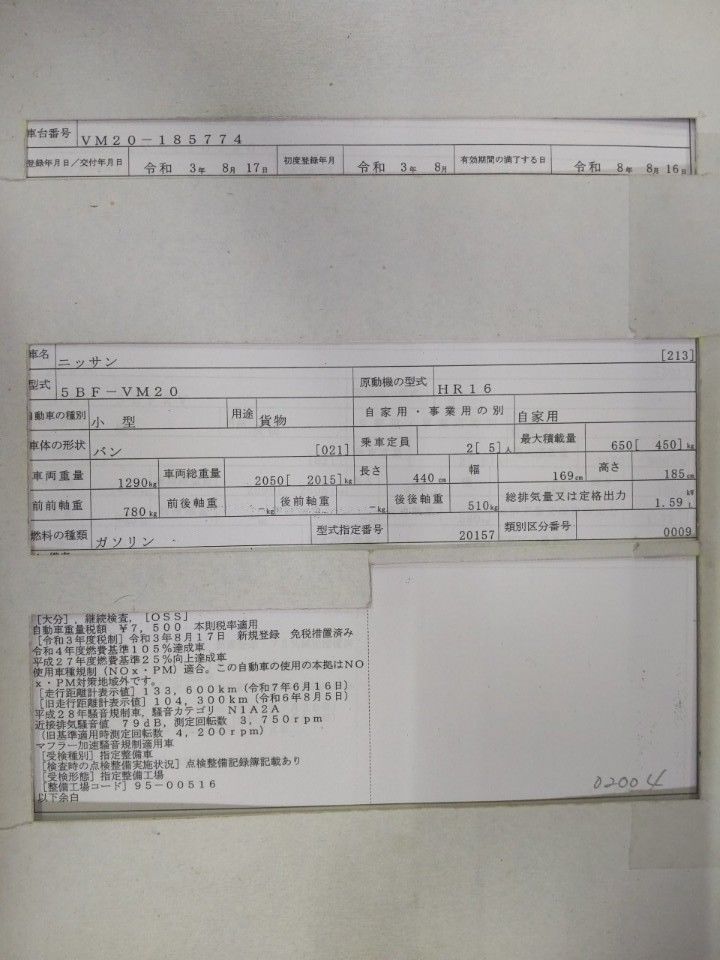 車台番号 VM20-185774
登録年月日/交付年月日 令和 3年 8月 17日 初度登録年月 令和 3年 8月 有効期間の満了する日 令和 8年 8月 16日
車名 ニッサン [213]
型式 5BF-VM20 原動機の型式 HR16
自動車の種別 小 型 用途 貨物 自家用・事業用の別 自家用
車体の形状 バン [021] 乗車定員 2[ 5]人 最大積載量 650[ 450]kg
車両重量 1290kg 車両総重量 2050[ 2015]kg 長さ 440cm 幅 169cm 高さ 185cm
前前軸重 780kg 前後軸重 -kg 後前軸重 -kg 後後軸重 510kg 総排気量又は定格出力 1.59 kW L
燃料の種類 ガソリン 型式指定番号 20157 類別区分番号 0009
[大分],継続検査,[OSS]
自動車重量税額 ¥7,500 本則税率適用
[令和3年度税制]令和3年8月17日 新規登録 免税措置済み
令和4年度燃費基準105%達成車
平成27年度燃費基準25%向上達成車
使用車種規制(NOx・PM)適合。この自動車の使用の本拠はNO
x・PM対策地域外です。
[走行距離計表示値]133,600km(令和7年6月16日)
[旧走行距離計表示値]104,300km(令和6年8月5日)
平成28年騒音規制車,騒音カテゴリ N1A2A
近接排気騒音値 79dB,測定回転数 3,750rpm
(旧基準適用時測定回転数 4,200rpm)
マフラー加速騒音規制適用車
[受検種別]指定整備車
[検査時の点検整備実施状況]点検整備記録簿記載あり
[受検形態]指定整備工場
[整備工場コード]95-00516
以下余白
02004